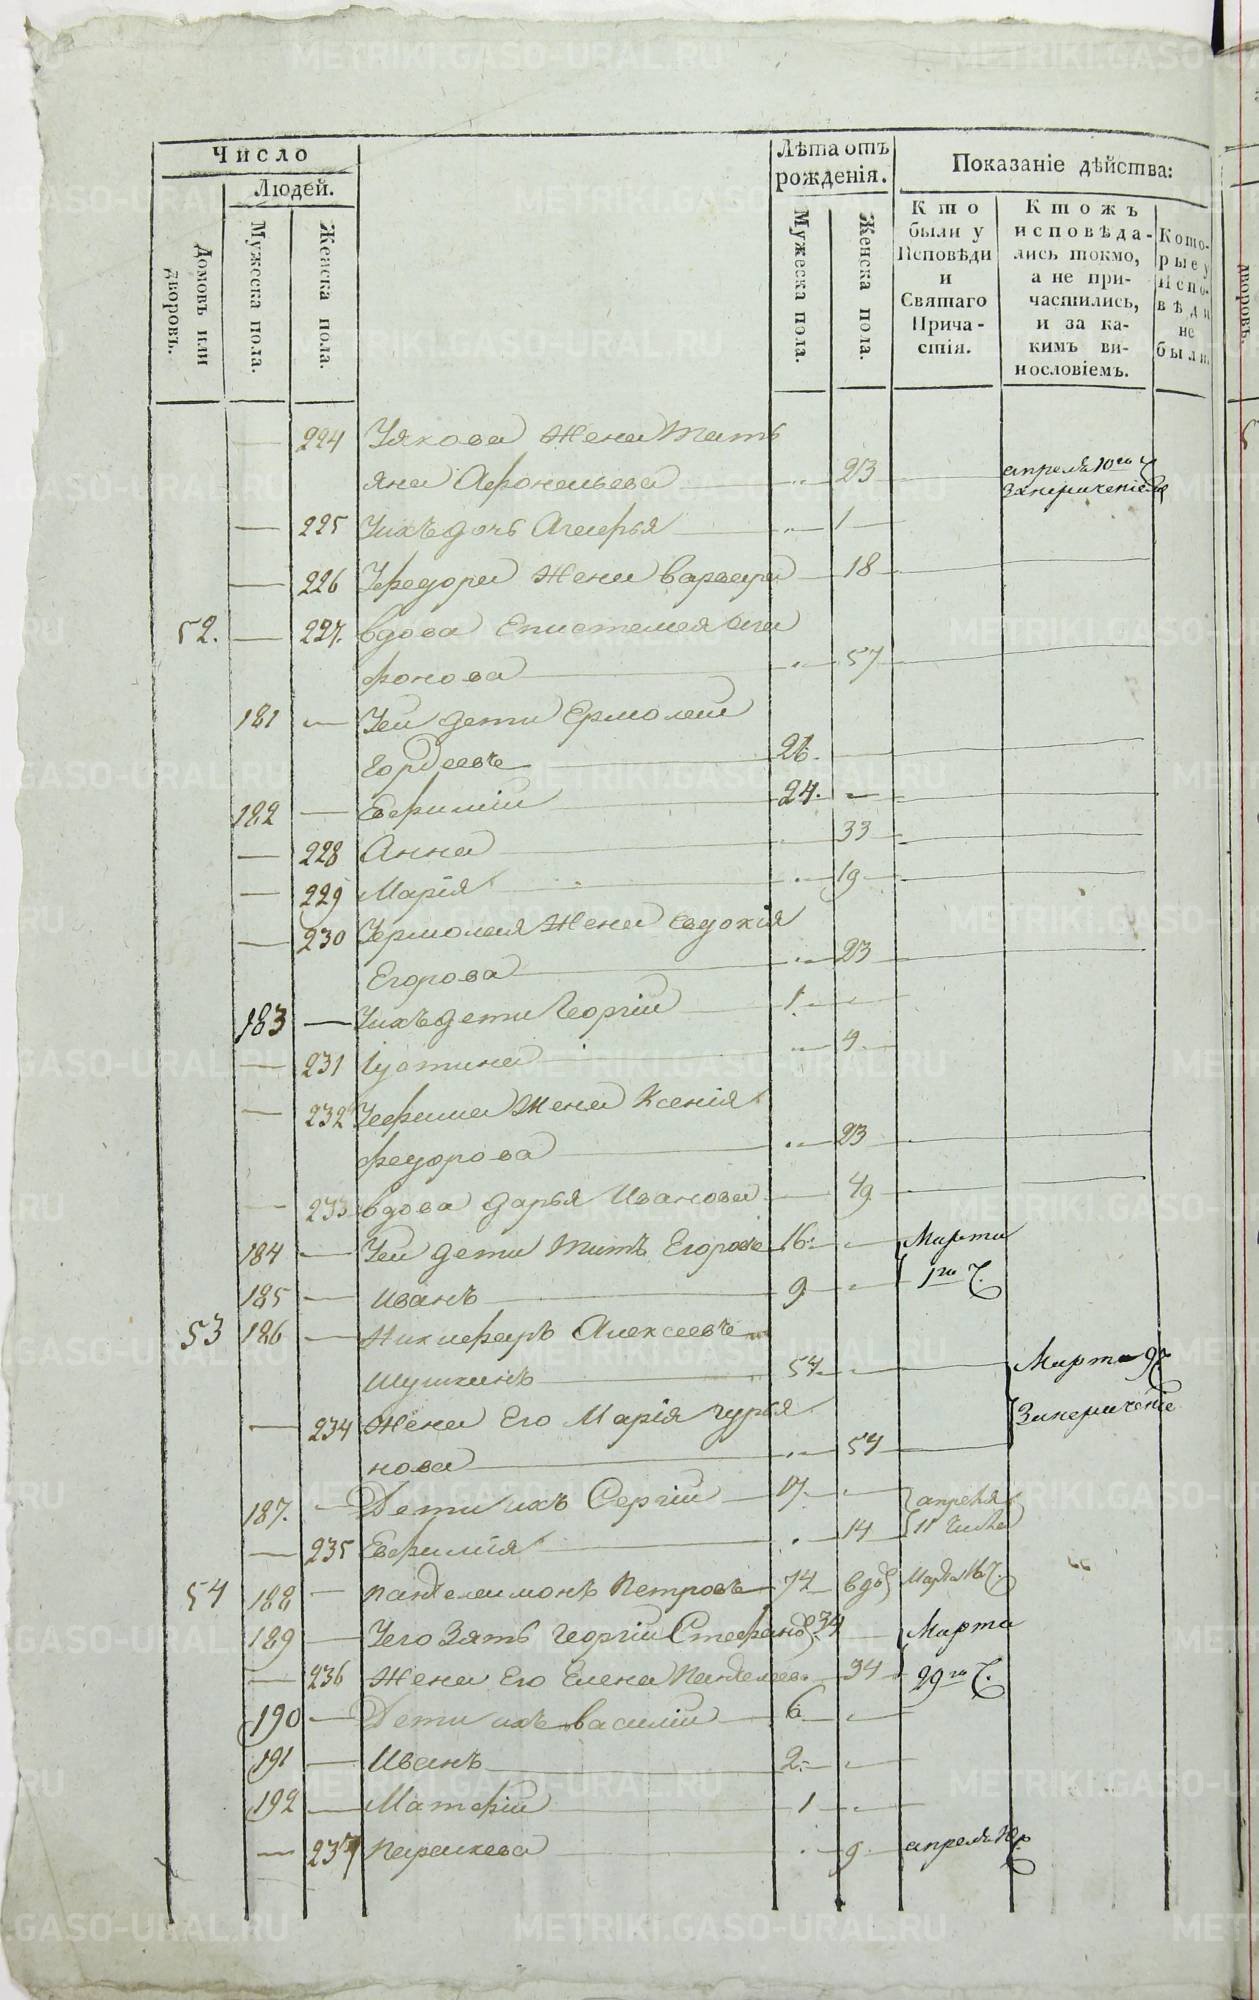 Число
Людей.
Домовъ или дворовъ.
Мужеска пола.
Женска пола.
Лѣта отъ рожденія.
Мужеска пола.
Женска пола.
Показаніе дѣйства:
Кто были у Исповѣди и Святаго Причастія.
Ктожъ исповѣдались токмо, а не причастились, и за какимъ винословіемъ.
Которые у Исповѣди не были.
— 224 Уякова жена Тать
яна Афонасьева „ 23 апреля 10го ч
— 225 Ихъ дочь „ 1
— 226 Уфедора жена Варвара — 18
52. — 227. вдова Епистемея Ага
фонова „ 57
181 — Уеи дети Ермолаи
Гордеевъ 26.
182 — Ефимии 24. —
— 228 Анна 33
— 229 Марія „ 19
— 230 Уермолая жена Евдокія
Егорова „ 23
183 — Ихъ дети Георгіи 1. —
— 231 Іустина „ 9
— 232 Уефима жена Ксенія
федорова „ 23
— 233 вдова Дарья Иванова — 49
184 — Уеи дети Титъ Егоровъ 16: — Марта
185 — Иванъ 9 — 1го Ч.
53 186 — Никифоръ Алексеевъ
Шушкинъ 57 — Марта 9 ч
— 234 Жена Его Марія гурья
нова „ 57
187. — Дети ихъ Сергіи 17 — апреля
— 235 Евфимія „ 14 11 числа
54 188 — Пантелеимонъ Петровъ 74 вдов Марта 16 ч.
189 — Уего Зять Георгіи Стефанов 34 — Марта
— 236 Жена Его Елена Пантелеев. — 34 29го Ч.
190 — Дети ихъ василіи 6 —
191 — Иванъ 2 —
192 — Матфіи 1 —
— 237 Параскева „ 9 апреля 10 ч
METRIKI.GASO-URAL.RU